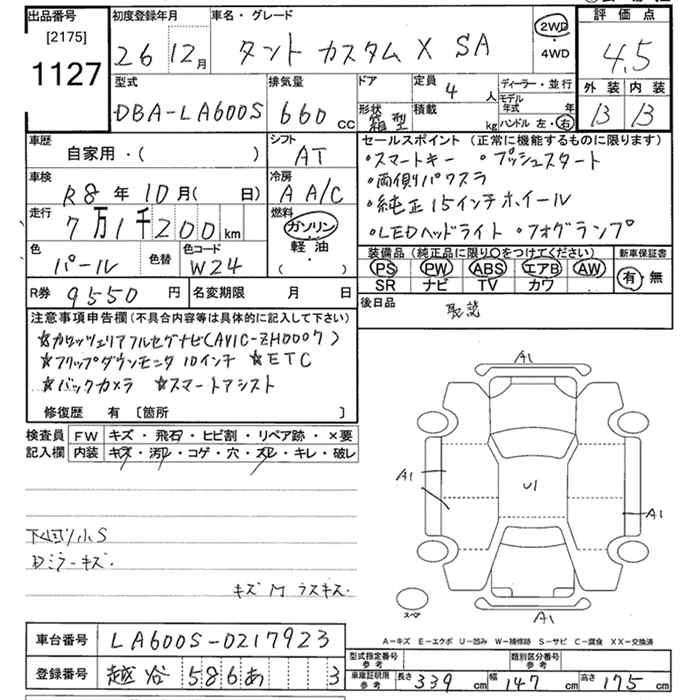 出品番号 初度登録年月 車名・グレード 評価点
[2175]
1127
26 12月 タント カスタム X SA 2WD・4WD 4.5
型式 排気量 ドア 定員 4人 ディーラー・並行 外装 内装
DBA-LA600S 660cc 形状 箱型 積載 kg モデル年式 年 ハンドル 左・右 B B
車歴 シフト セールスポイント (正常に機能するものに限ります)
自家用・( ) AT ・スマートキー ・プッシュスタート
車検 冷房 ・両側パワスラ
R8年10月( 日) A A/C ・純正15インチホイール
走行 燃料
7万1千200km ガソリン・軽油・( ) ・LEDヘッドライト ・フォグランプ
色 色替 色コード 装備品 (純正品に限り○をつけてください) 新車保証書
パール W24 PS PW ABS エアB AW 有・無
SR ナビ TV カワ
R券 9550円 名変期限 月 日 後日品 取説
注意事項申告欄(不具合内容等は具体的に記入して下さい)
☆カロッツェリアフルセグナビ(AVIC-ZH0007)
☆フリップダウンモニタ10インチ ☆ETC
☆バックカメラ ☆スマートアシスト
修復歴 有 [箇所 ]
検査員 FW キズ・飛石・ヒビ割・リペア跡・×要
記入欄 内装 キズ・汚レ・コゲ・穴・スレ・キレ・破レ
A1
A1 U1 A1
下回り小S
Dミラーキズ.
キズ M ラスキズ.
スペア A1
A-キズ E-エクボ U-凹み W-補修跡 S-サビ C-腐食 XX-交換済
車台番号 LA600S-0217923
登録番号 越谷 586 あ 3
型式指定番号 参考 類別区分番号 参考
車庫証明用 参考 長さ 339cm 幅 147cm 高さ 175cm